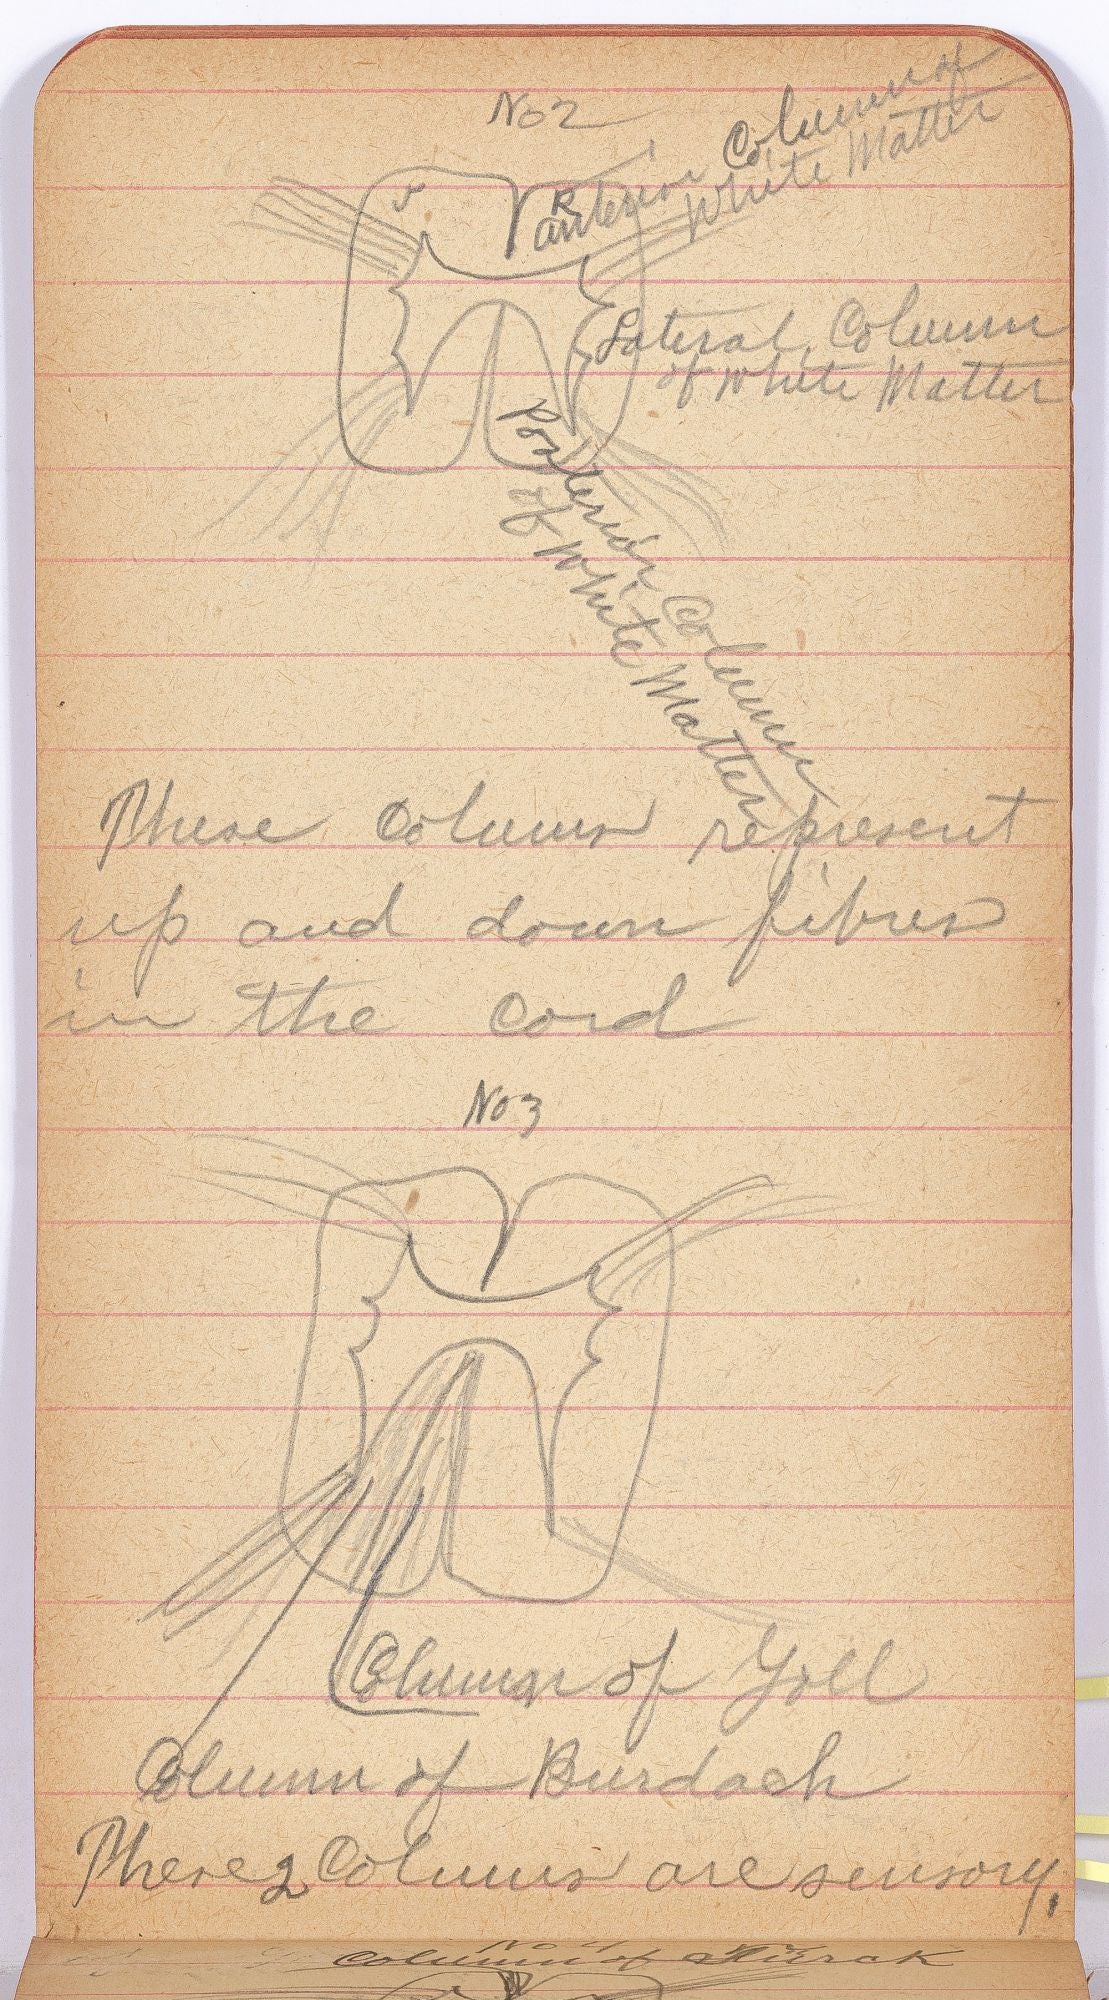 No 2
Anterior Column of
White Matter
R
Lateral Column
of White Matter
Posterior Column
of White Matter
These Columns represent
up and down fibres
in the cord
No 3
Column of Goll
Column of Burdach
These 2 Columns are sensory.
No 4
Column of